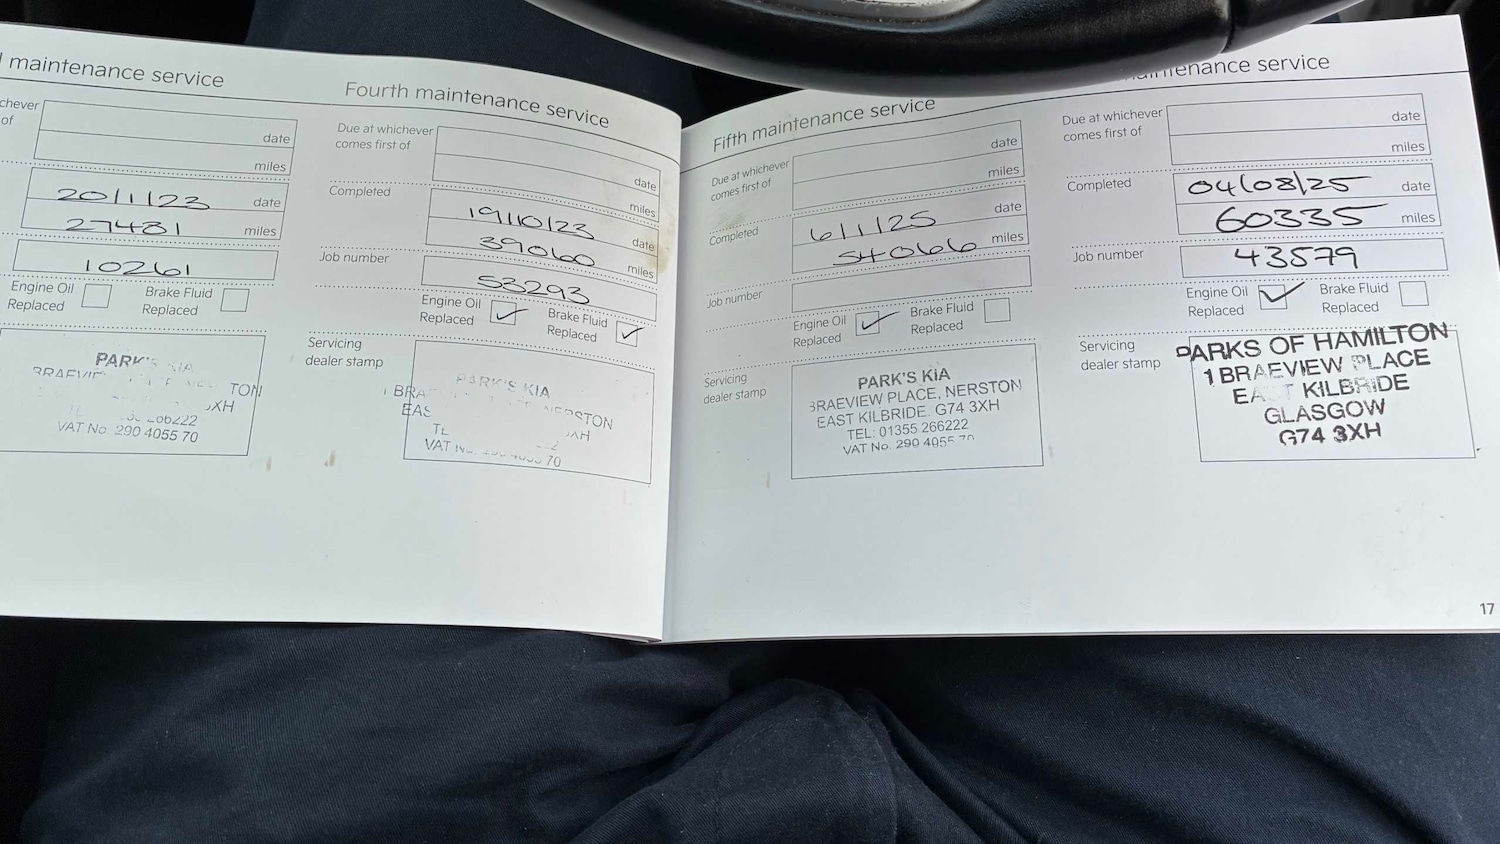 maintenance service
chever
of
date
miles
20/1/23 date
27481 miles
10261
Engine Oil
Replaced
Brake Fluid
Replaced
PARK'S KIA
TON
XH
266222
VAT No. 290 4055 70
Fourth maintenance service
Due at whichever
comes first of
date
miles
Completed
19/10/23 date
39060 miles
Job number
53293
Engine Oil
Replaced
Brake Fluid
Replaced
Servicing
dealer stamp
PARK'S KIA
NERSTON
70
Fifth maintenance service
Due at whichever
comes first of
date
miles
Completed
6/1/25 date
54066 miles
Job number
Engine Oil
Replaced
Brake Fluid
Replaced
Servicing
dealer stamp
PARK'S KIA
BRAEVIEW PLACE, NERSTON
EAST KILBRIDE. G74 3XH
TEL: 01355 266222
VAT No. 290 4055 70
maintenance service
Due at whichever
comes first of
date
miles
Completed
04/08/25 date
60335 miles
Job number
43579
Engine Oil
Replaced
Brake Fluid
Replaced
Servicing
dealer stamp
PARKS OF HAMILTON
1 BRAEVIEW PLACE
EAST KILBRIDE
GLASGOW
G74 3XH
17